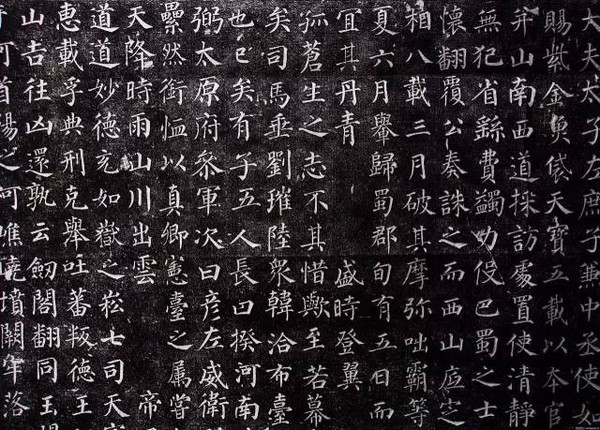 大夫太子左庶子兼中丞使如
賜紫金魚袋天寶五載以本官
并山南西道採訪處置使清靜
無犯省繇費蠲力役巴蜀之士
懷翻覆公奏誅之而西山底定
相八載三月破其摩弥咄霸等
夏六月轝歸蜀郡旬有五日而
宜其丹青 盛時登翼
孤蒼生之志不其惜歟至若幕
矣司馬垂劉璀陸衆韓洽布臺
也已矣有子五人長曰揆河南
弼太原府叅軍次曰彦左威衛
纍然銜恤以真卿憲臺之属嘗
天降時雨山川出雲 帝
道道妙德充如嶽之崧七司天
惠載孚典刑克舉吐蕃叛德王
山吉往凶還孰云劒閣翻同玉
可首陽之阿嘵墳闕牢落